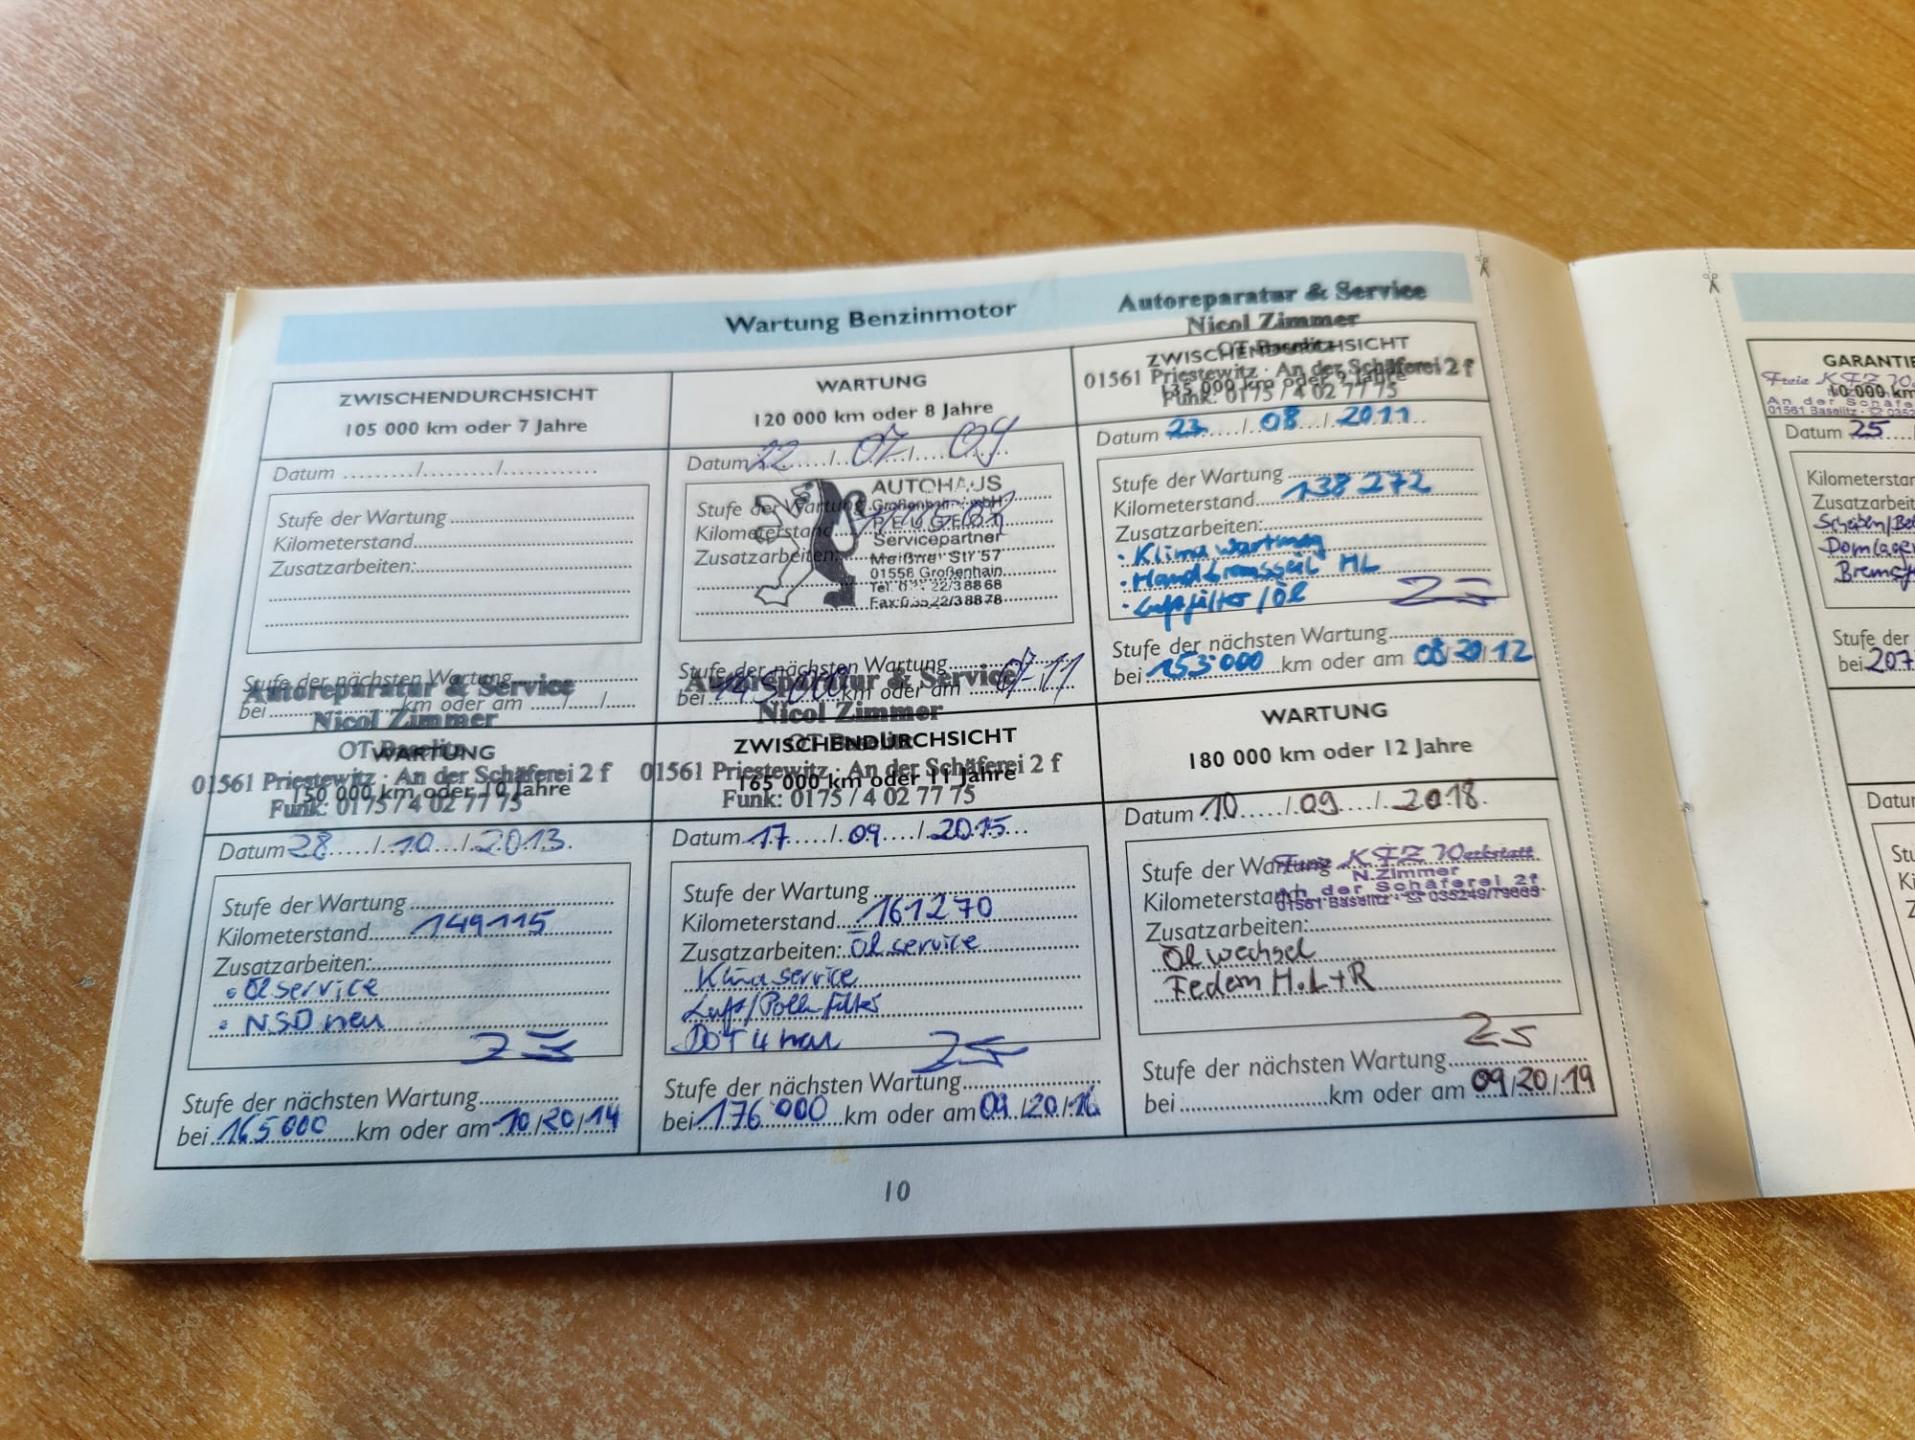 Wartung Benzinmotor
ZWISCHENDURCHSICHT
105 000 km oder 7 Jahre
Datum ........./........./............
Stufe der Wartung
Kilometerstand
Zusatzarbeiten:
Stufe der nächsten Wartung
bei ............ km oder am ....../....../......
WARTUNG
120 000 km oder 8 Jahre
Datum 22 / 07 / 09
Stufe der Wartung
Kilometerstand
Zusatzarbeiten:
AUTOHAUS
Großenhain GmbH
PEUGEOT
Servicepartner
Meißner Str 57
01558 Großenhain
Fax:03522/38878
Stufe der nächsten Wartung
bei 145000 km oder am 07-11
Autoreparatur & Service
Nicol Zimmer
OT Baselitz
ZWISCHENDURCHSICHT
01561 Priestewitz · An der Schäferei 2 f
135 000 km oder 9 Jahre
Funk: 0175 / 4 02 77 75
Datum 23 / 08 / 2011
Stufe der Wartung
Kilometerstand 138 272
Zusatzarbeiten:
• Klimawartung
• Handbremsseil HL
• Luftfilter / Öl
Stufe der nächsten Wartung
bei 153000 km oder am 08/20/12
Autoreparatur & Service
Nicol Zimmer
OT Baselitz
WARTUNG
01561 Priestewitz · An der Schäferei 2 f
150 000 km oder 10 Jahre
Funk: 0175 / 4 02 77 75
Datum 28 / 10 / 2013
Stufe der Wartung
Kilometerstand 149115
Zusatzarbeiten:
• Ölservice
• NSD neu
Stufe der nächsten Wartung
bei 165000 km oder am 10/20/14
Autoreparatur & Service
Nicol Zimmer
OT Baselitz
ZWISCHENDURCHSICHT
01561 Priestewitz · An der Schäferei 2 f
165 000 km oder 11 Jahre
Funk: 0175 / 4 02 77 75
Datum 17 / 09 / 2015
Stufe der Wartung
Kilometerstand 161270
Zusatzarbeiten: Ölservice
Klimaservice
Luft/Pollenfilter
DOT 4 neu
Stufe der nächsten Wartung
bei 176000 km oder am 09/20/16
WARTUNG
180 000 km oder 12 Jahre
Datum 10 / 09 / 2018
Stufe der Wartung
Freie KFZ Werkstatt
N.Zimmer
Kilometerstand
An der Schäferei 2f
01561 Baselitz · ☎ 035249/79663
Zusatzarbeiten:
Ölwechsel
Federn H.L+R
Stufe der nächsten Wartung
bei ............ km oder am 09/20/19
10
GARANTIE
Freie KFZ
10 000 km
An der
01561 Baselitz · ☎
Datum 25
Kilometerstan
Zusatzarbeit
Scheiben/
Domlager
Stufe der
bei 207
Datu
Stu
Ki